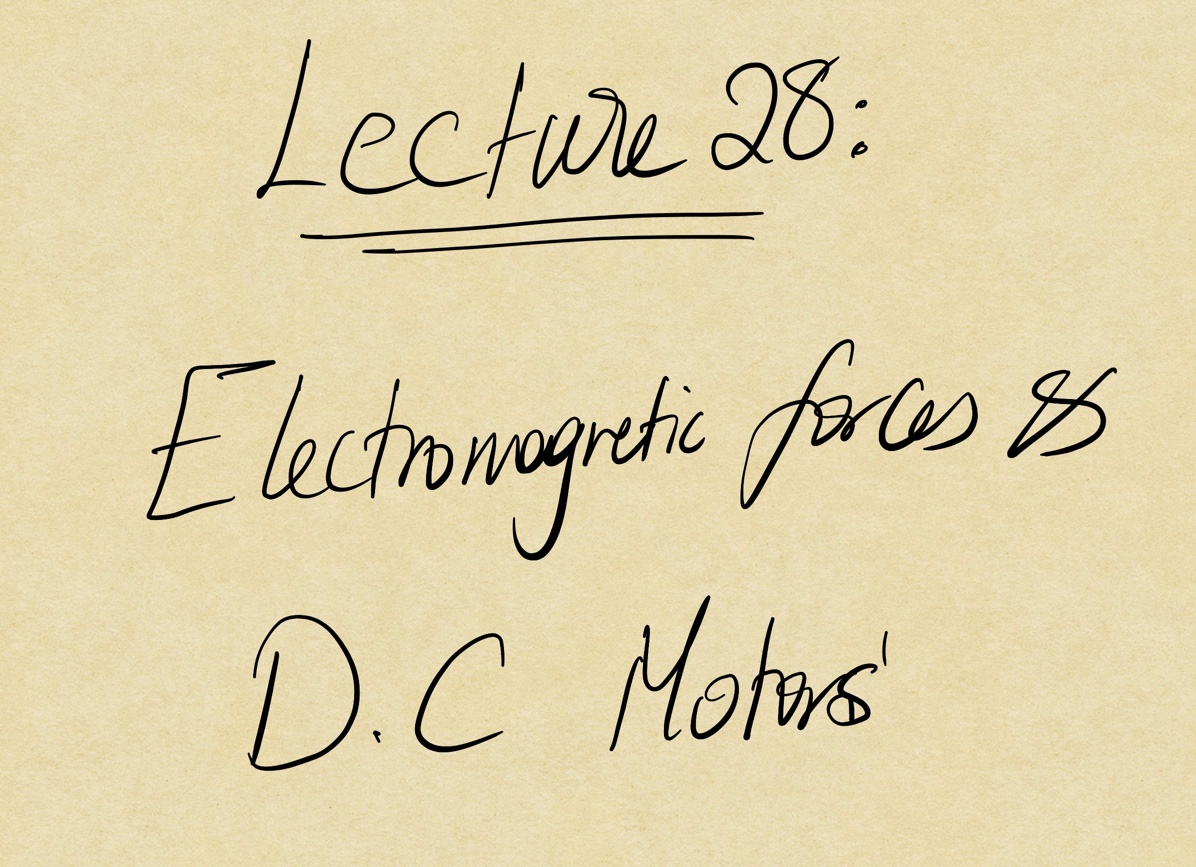 Lecture 28:
Electromagnetic forces &
D.C Motors'